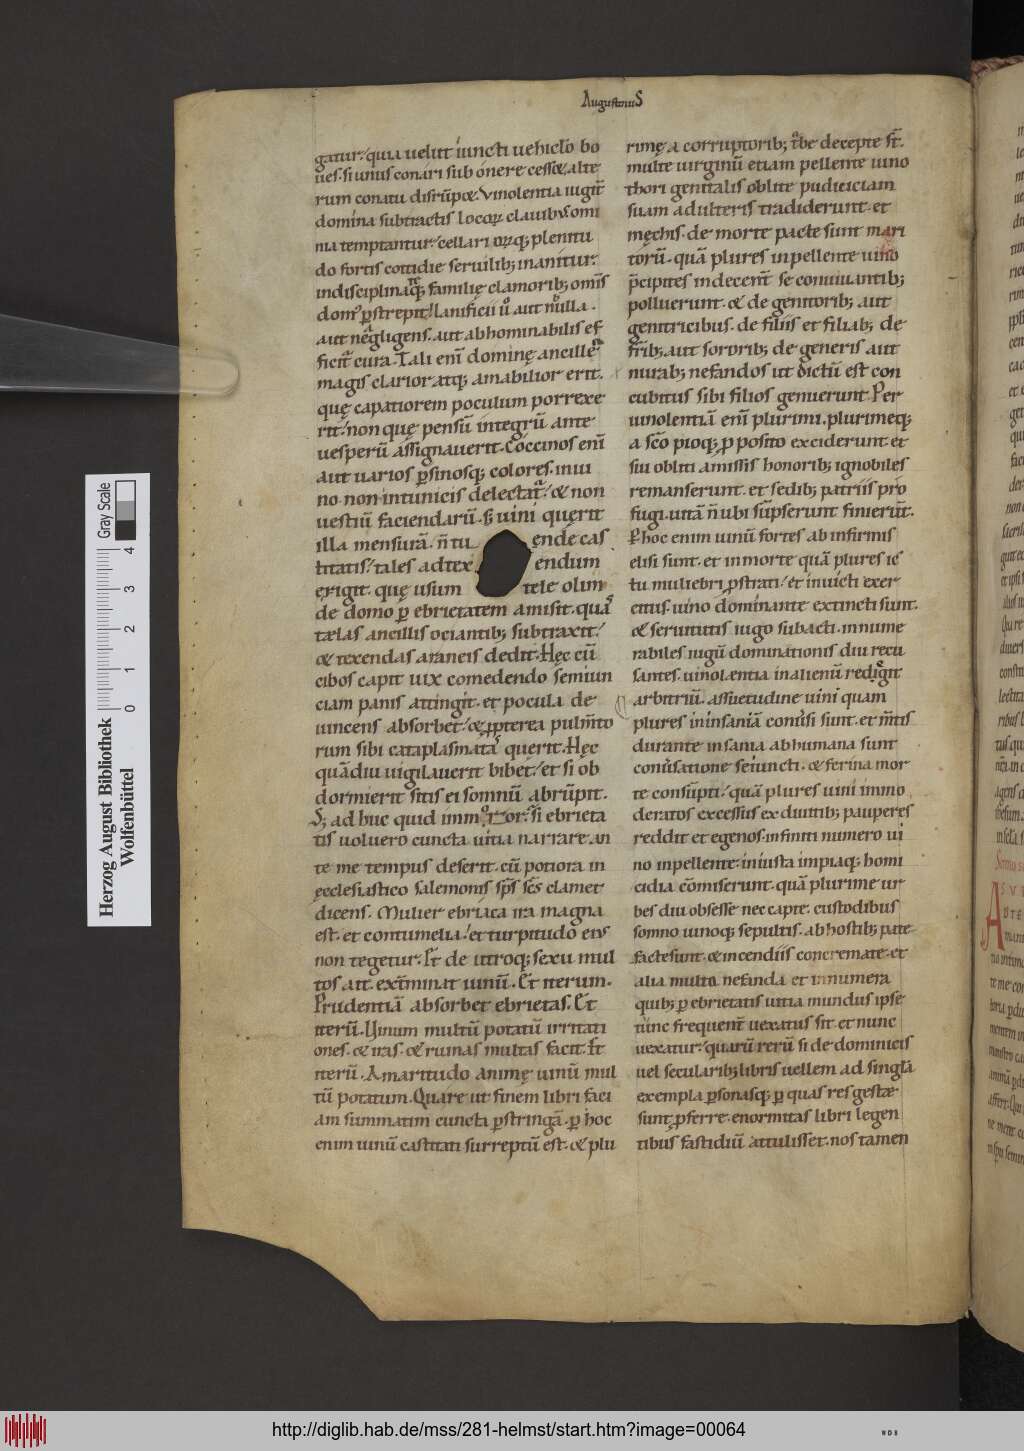 AugustinuS
gatur. quia uelut iuncti uehiclō bo
ues. si unus conari sub onere cessœ. alte
rum conatu disrūpœ. Vinolentia iugit̄
domina subtractis locoꝝ clauibus omi
nia temptantur. cellarioꝝq; plenitu
do fortis cottidie seruilib; inanitur.
indisciplinatęq; familię clamorib; om̄is
dom᷒ ꝑstrepit. lanificii uͦ aut nulla.
aut negligens. aut abhominabilis ef
ficit̄ cura. Tali enī dominę ancillę
magis clarior atq; amabilior erit.
quę capatiorem poculum porrexe
rit. non quę pensū integrū ante
uesperū assignauerit. Coccinos enī
aut uarios ꝑsinosq; colores. in ui
no. non in tunicis delectat̄. œ non
uestiū faciendarū. s; uini querit
illa mensurā. n̄ tu ende cas
titatis. tales ad tex endum
erigit. quę usum tele olim
de domo ꝑ ebrietatem amisit. quas
tælas ancillis ociantib; subtraxit.
œ texendas araneis dedit. Hęc cū
cibos capit uix comedendo semiun
ciam panis attingit. et pocula de
iuincens absorbet. œ ꝓpterea pulm̄to
rum sibi cataplasmata querit. Hęc
quādiu uigilauerit bibet. et si ob
dormierit sitis ei somnū abrūpit.
S; ad huc quid immoror. si ebrieta
tis uoluero cuncta uitia narrare. an
te me tempus deserit. cū potiora in
ecclesiastico salemonis sp̄s sc̄s clamet
dicens. Mulier ebriaca ira magna
est. et contumelia. et turpitudo eius
non tegetur. Et de utroq; sexu mul
tos ait exīminat uinū. Et iterum.
Prudentiā absorbet ebrietas. Et
iterū. Uinum multū potatū irritati
ones. œ iras. œ ruinas multas facit. Et
iterū. Amaritudo animę uinū mul
tū potatum. Quare ut finem libri faci
am summatim cuncta ꝑstringā. ꝑ hoc
enim uinū castitati surreptū est. œ plu
rimę a corruptorib; ... decepte st̄.
multe uirginū etiam pellente uino
thori genitalis oblite pudiciciam
suam adulteris tradiderunt. et
męchis. de morte pacte sunt mari
torū. quā plures inpellente uino
p̄cipites indecent̄ se conuiuantib;
polluerunt. œ de genitorib; aut
genitricibus. de filiis et filiab; de
fr̄ib; aut sororib; de generis aut
nurab; nefandos ut dictū est con
cubitus sibi filios genuerunt. Per
uinolentiā enī plurimi. plurimeq;
a sc̄o pioq; ꝓposito exciderunt. et
sui obliti amissis honorib; ignobiles
remanserunt. et sedib; patriis pro
fugi. uitā n̄ ubi sūpserunt finierūt.
Per hoc enim uinū fortes ab infirmis
elisi sunt. et in morte quā plures ic
tu muliebri ꝓstrati. et inuicti exer
citus. uino dominante extincti sunt.
œ seruitutis iugo subacti. innume
rabiles iugū dominationis diu recu
santes. uinolœntia in alienū redigit
arbitriū. assuetudine uini quam
plures in insaniā conūsi sunt. et m̄tis
durante insania ab humana sunt
conūsatione seiuncti. œ ferina mor
te consūpti. quā plures uini immo
deratos excessus ex diuitib; pauperes
reddit et egenos. infiniti numero ui
no inpellente. iniusta impiaq; homi
cidia cōmiserunt. quā plurime ur
bes diu obsesse nec capte. custodibus
somno uinoq; sepultis. ab hostib; pate
facte sunt. œ incendiis concremate. et
alia multa nefanda et innumera
quib; ꝑ ebrietatis uitia mundus ipse
tunc frequent̄ uexatus sit. et nunc
uexatur. quarū rerū si de dominicis
uel secularib; libris uellem ad singla
exempla ꝑsonasq; ꝑ quas res gestæ
sunt ꝓferre. enormitas libri legen
tibus fastidiū attulisset. nos tamen
Herzog August Bibliothek
Wolfenbüttel
Gray Scale
0 1 2 3 4
http://diglib.hab.de/mss/281-helmst/start.htm?image=00064